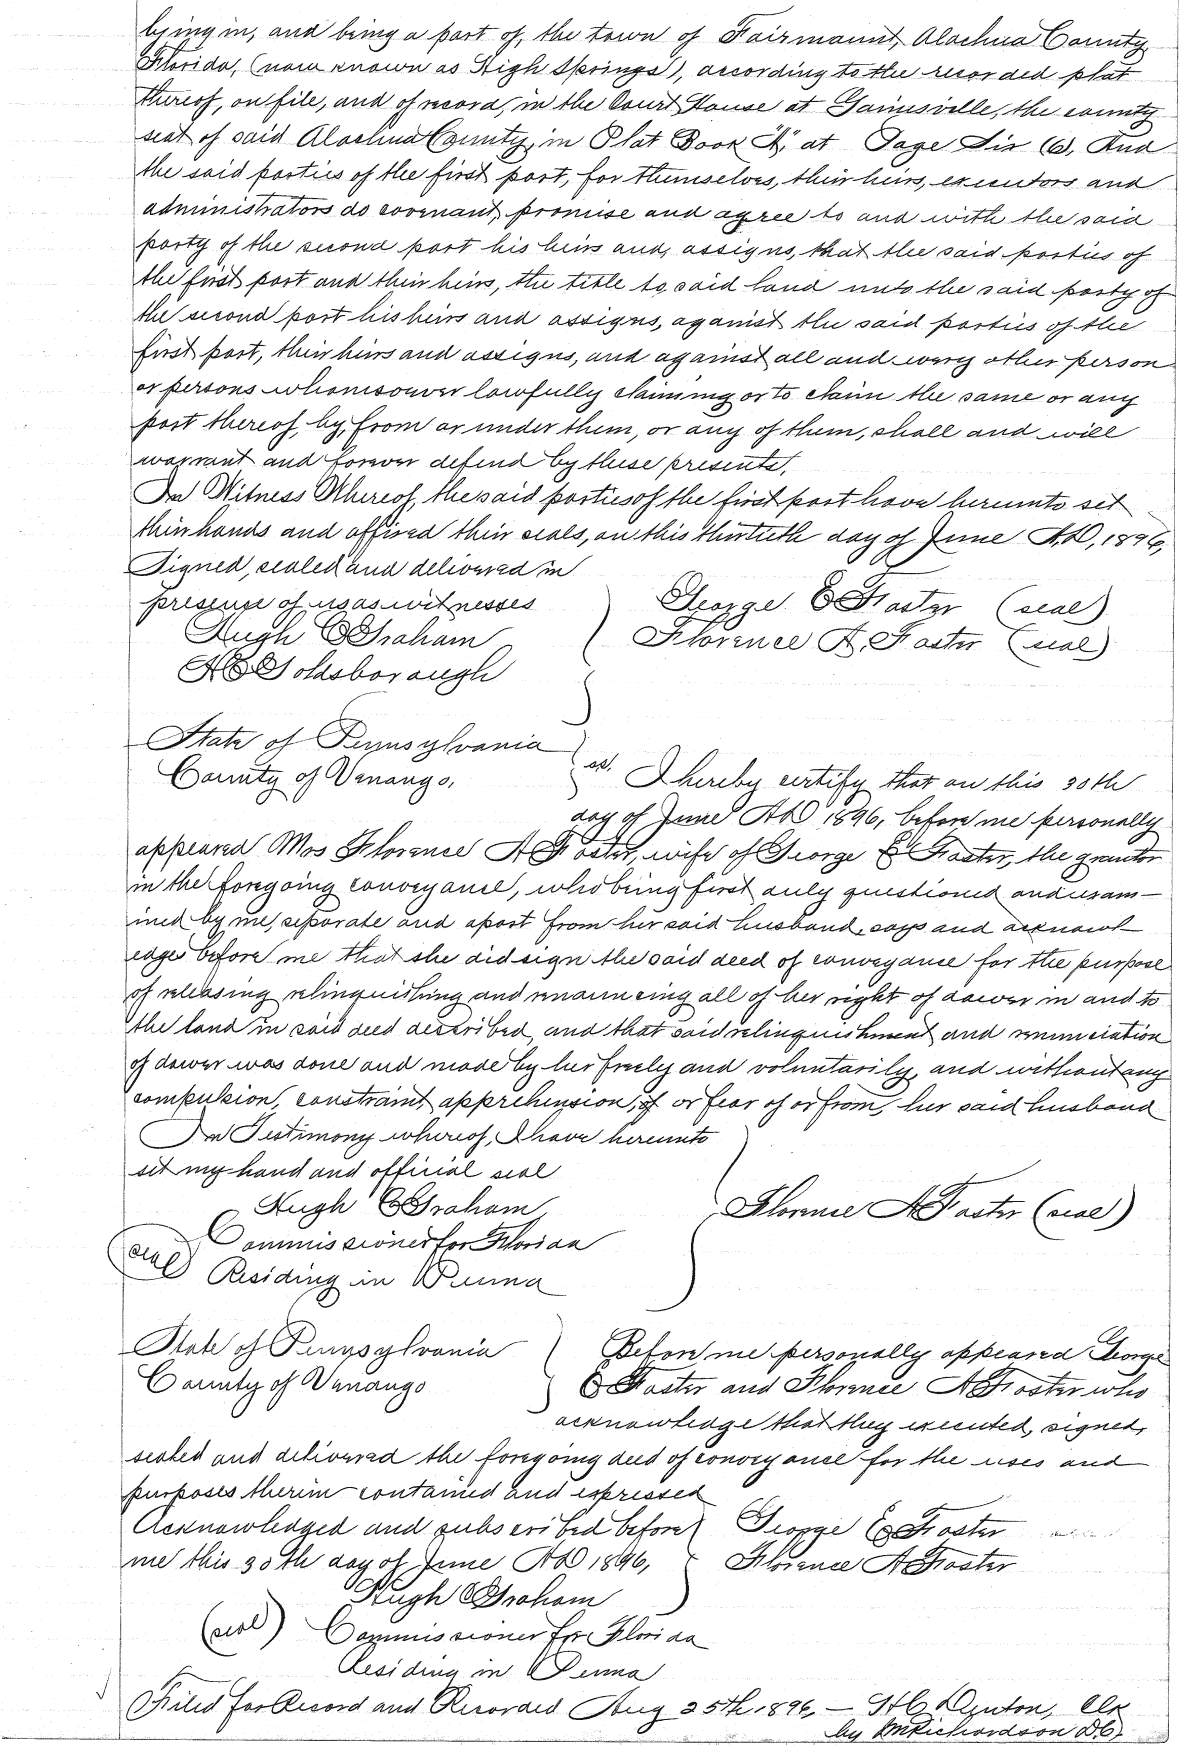 lying in, and being a part of, the town of Fairmount, Alachua County,
Florida, (now known as High Springs), according to the recorded plat
thereof, on file, and of record, in the Court House at Gainesville, the county
seat of said Alachua County, in Plat Book "A", at Page Six (6), And
the said parties of the first part, for themselves, their heirs, executors and
administrators do covenant, promise and agree to and with the said
party of the second part his heirs and, assigns, that the said parties of
the first part and their heirs, the title to, said land unto the said party of
the second part his heirs and assigns, against the said parties of the
first part, their heirs and assigns, and against all and every other person
or persons whomsoever lawfully claiming or to claim the same or any
part thereof, by, from or under them, or any of them, shall and will
warrant and forever defend by these presents,
In Witness Whereof, the said parties of the first part have hereunto set
their hands and affixed their seals, on this thirtieth day of June A.D, 1896,
Signed, sealed and delivered in
presence of us as witnesses
George E Foster (seal)
Hugh C Graham
Florence A. Foster (seal)
A C Goldsborough
State of Pennsylvania
County of Venango,
ss. I hereby certify that on this 30th
day of June A D 1896, before me personally
appeared Mrs Florence A Foster, wife of George E Foster, the grantor
in the foregoing conveyance, who being first duly questioned and exam-
ined by me, separate and apart from her said husband, says and acknowl-
edges before me that she did sign the said deed of conveyance for the purpose
of releasing relinquishing and renouncing all of her right of dower in and to
the land in said deed described, and that said relinquishment and renunciation
of dower was done and made by her freely and voluntarily, and without any
compulsion, constraint, apprehension, of or fear of or from, her said husband
In Testimony whereof, I have hereunto
set my hand and official seal
Hugh C Graham,
Florence A Foster (seal)
Commissioner for Florida
(seal)
Residing in Penna
State of Pennsylvania
County of Venango
Before me personally appeared George
E Foster and Florence A Foster who
acknowledge that they executed, signed,
sealed and delivered the foregoing deed of conveyance for the uses and
purposes therein contained and expressed
Acknowledged and subscribed before
George E Foster
me this 30th day of June A D 1896,
Florence A Foster
Hugh C Graham
(seal) Commissioner for Florida
Residing in Penna
Filed for Record and Recorded Aug 25th 1896, — H C Denton, Clk
by M Richardson D.C.